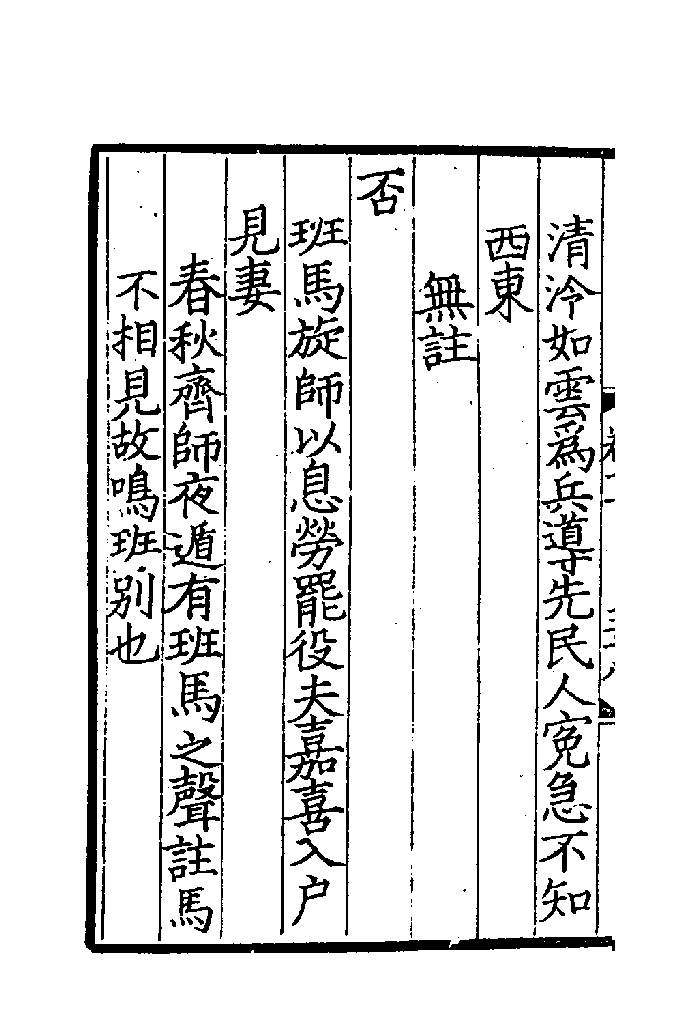 清泠如雲爲兵導先民人寃急不知
西東
無註
否
班馬旋師以息勞罷役夫嘉喜入户
見妻
春秋齊師夜遁有班馬之聲註馬
不相見故鳴班别也